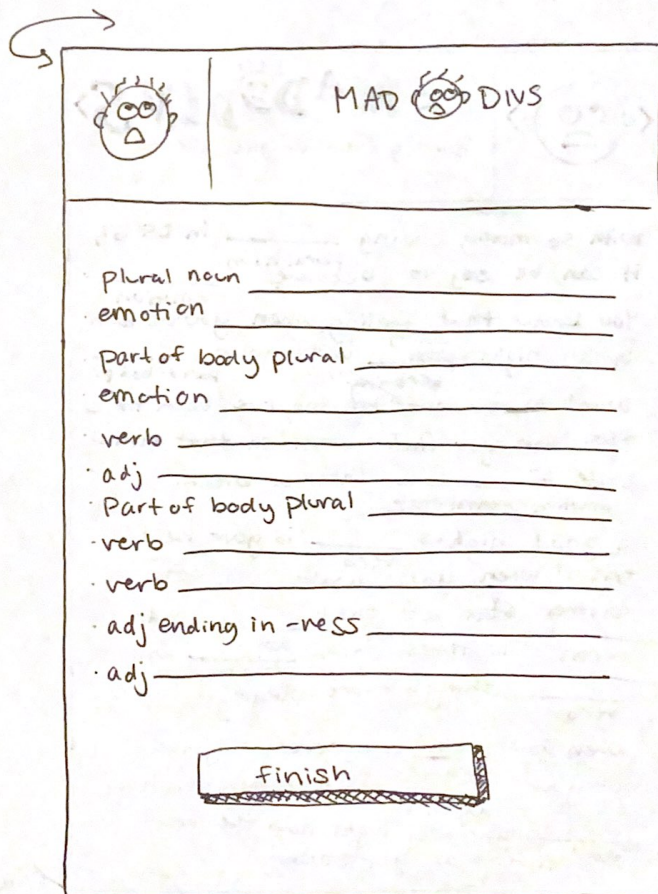 MAD DIVS
plural noun
emotion
part of body plural
emotion
verb
adj
Part of body plural
verb
verb
adj ending in -ness
adj
finish